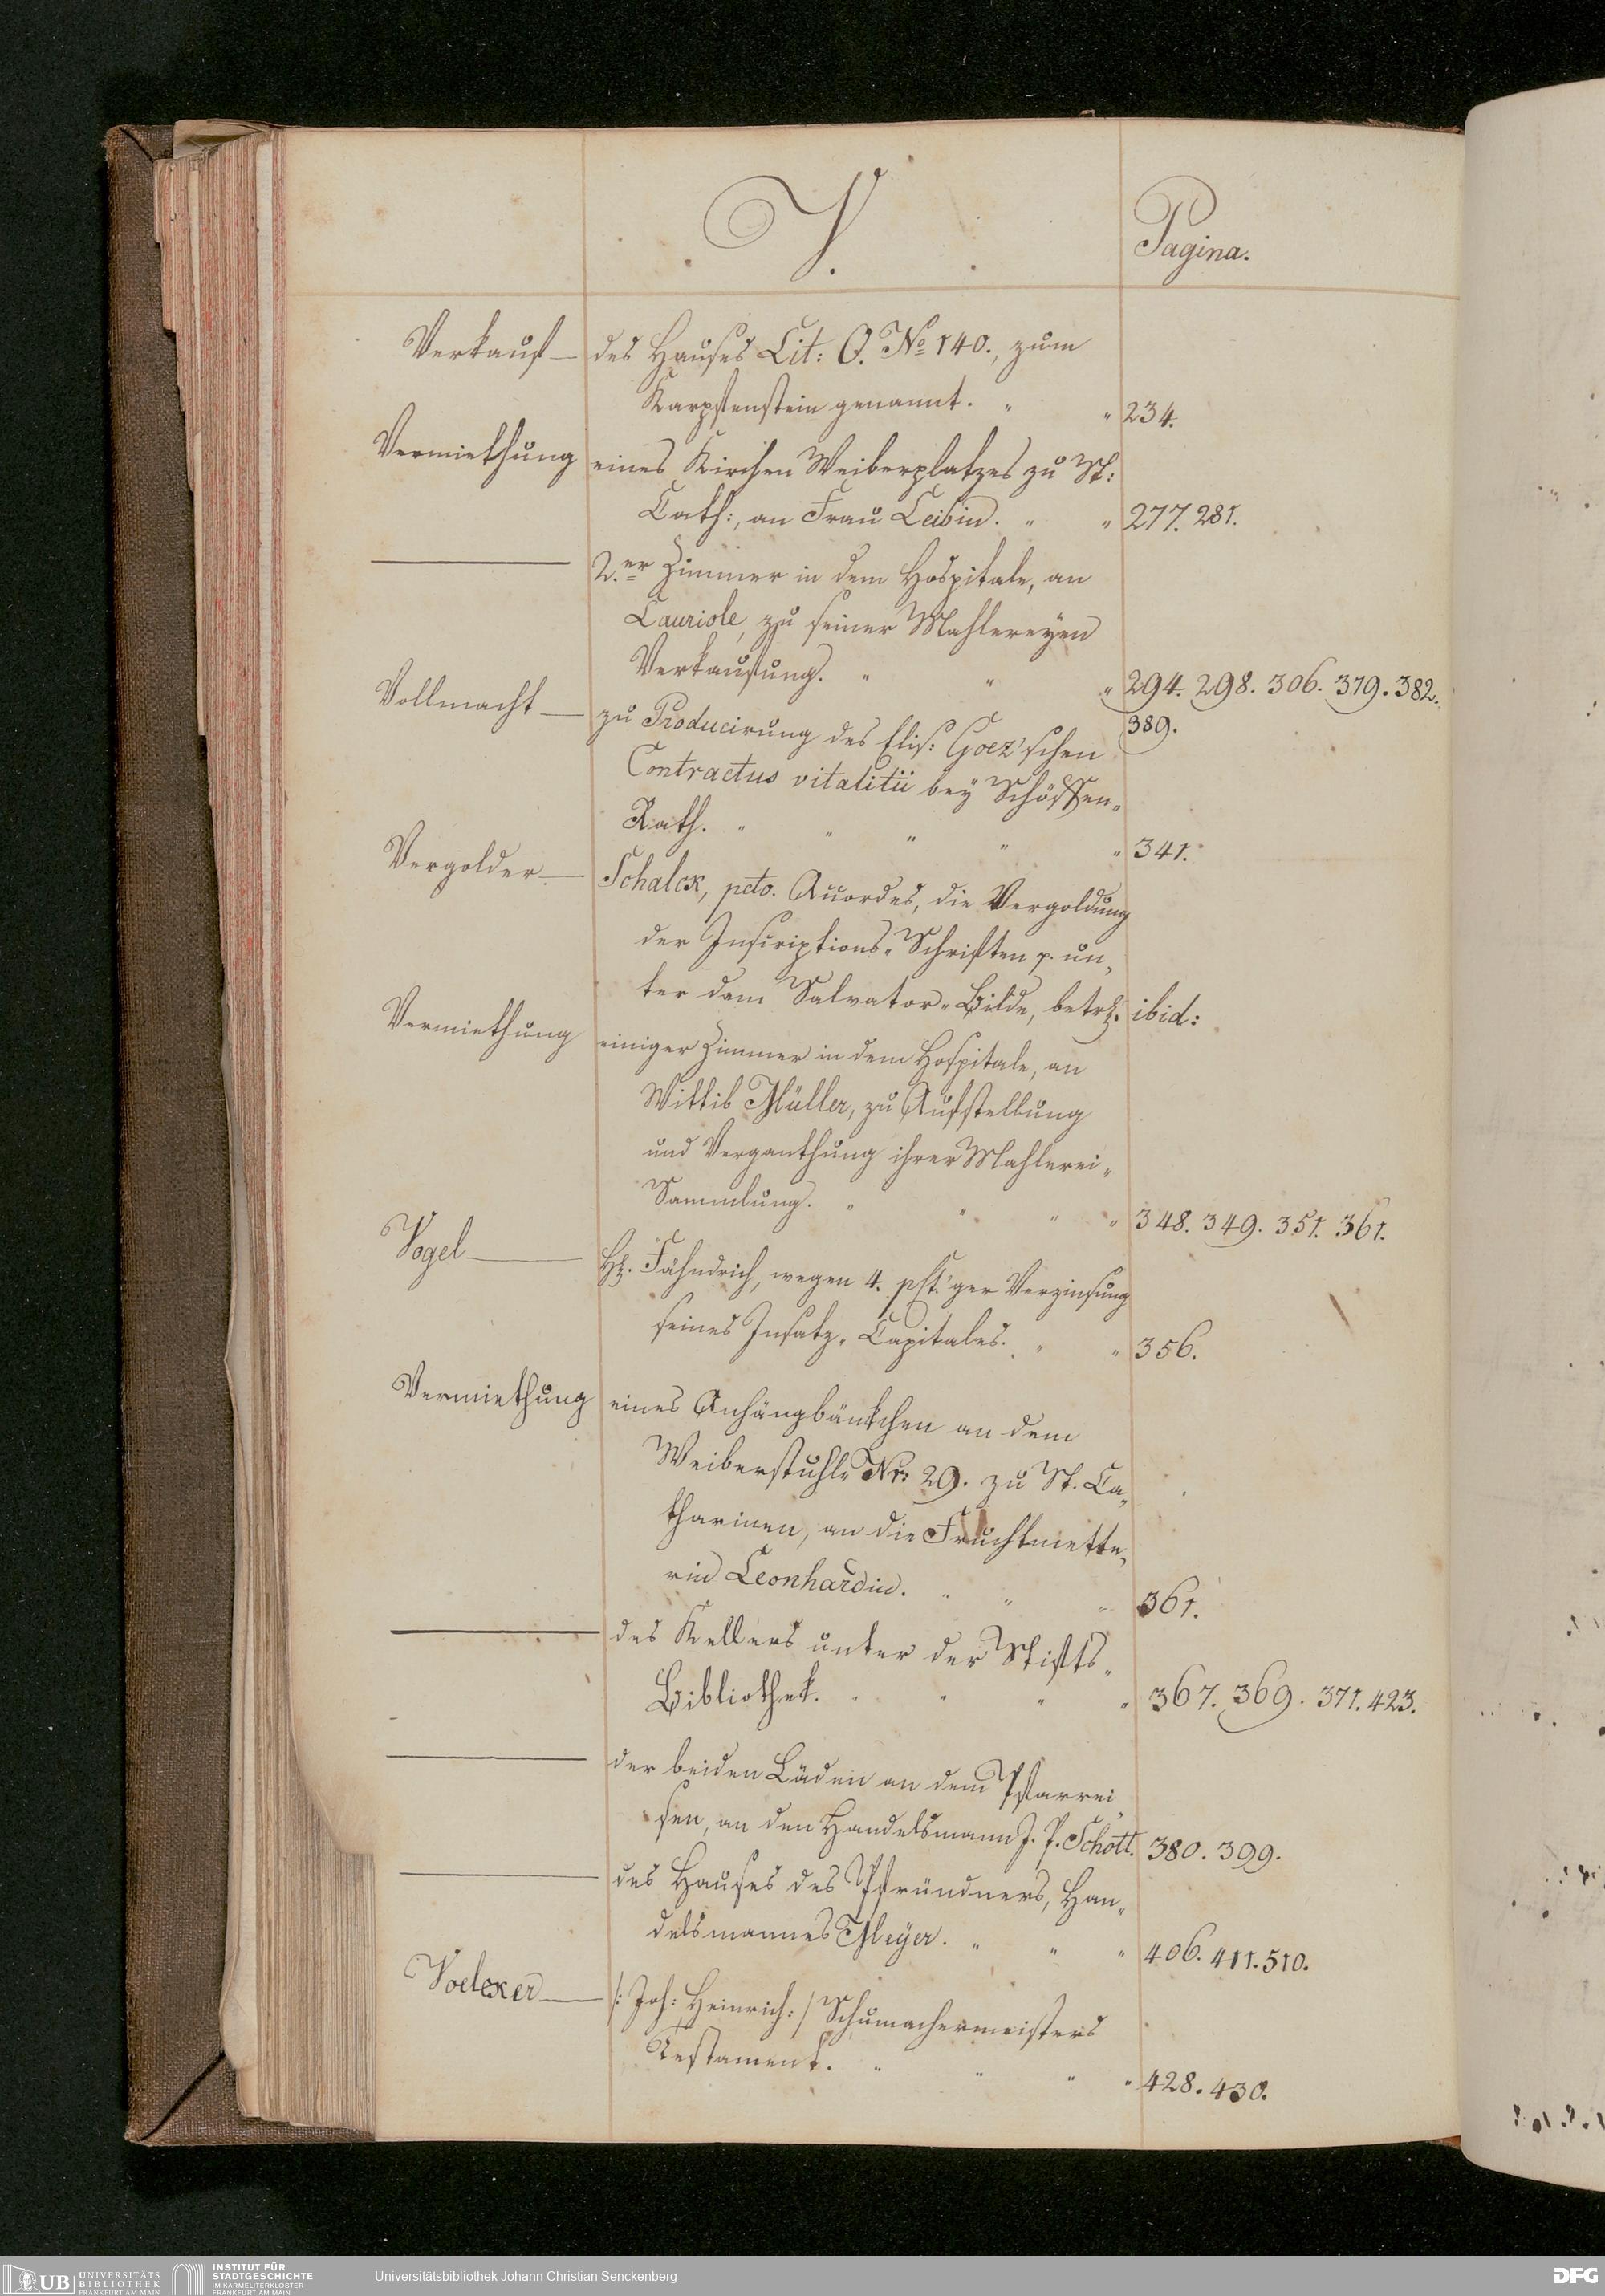 V.
Pagina.
Verkauf — des Hauses Lit: O. No 140., zum
Karpfenstein genannt. " " 234.
Vermiethung eines Kirchen Weiberplatzes zu St:
Cath:, an Frau Leibin. " " 277. 281.
— 2.er Zimmer in dem Hospitale, an
Lauriole, zu seiner Mahlereyen
Verkaufung. " " " 294. 298. 306. 379. 382.
389.
Vollmacht — zu Producirung des Elis: Goez'schen
Contractus vitalitii bey Schöffen-
Rath. " " " " " 341.
Vergolder — Schalck, pcto. Accordes, die Vergoldung
der Inscriptions-Schriften p. un-
ter dem Salvator-Bilde, betr. ibid:
Vermiethung einiger Zimmer in dem Hospitale, an
Wittib Müller, zu Aufstellung
und Verganthung ihrer Mahlerei-
Sammlung. " " " " 348. 349. 351. 361.
Vogel — H. Fähndrich, wegen 4. pCt.'ger Verzinsung
seines Insatz-Capitales. " " 356.
Vermiethung eines Anhängbänkchen an dem
Weiberstuhle Nr: 29. zu St. Ca-
tharinen, an die Fruchtmette-
rin Leonhardin. " " " 361.
— des Kellers unter der Stifts-
Bibliothek. " " " " 367. 369. 371. 423.
— der beiden Läden an dem Pfarrei
sen, an den Handelsmann J. P. Schott. 380. 399.
— des Hauses des Pfründners, Han-
delsmannes Meyer. " " " 406. 411. 510.
Voelcker — /: Joh: Heinrich: / Schumachermeisters
Testament. " " " " 428. 430.
UB UNIVERSITÄTS
BIBLIOTHEK
FRANKFURT AM MAIN
INSTITUT FÜR
STADTGESCHICHTE
IM KARMELITERKLOSTER
FRANKFURT AM MAIN
Universitätsbibliothek Johann Christian Senckenberg
DFG